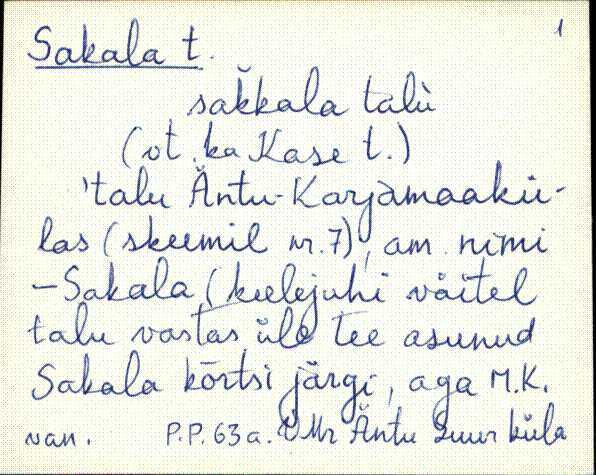 Sakala t. 1
sak̆kala talù
(vt. ka Kase t.)
'talu Äntu-Karjamaakü-
las (skeemil nr. 7), am. nimi
– Sakala (keelejuhi väitel
talu vastas üle tee asunud
Sakala kõrtsi järgi, aga M.K.
van. P.P. 63 a. VMr Äntu suurküla